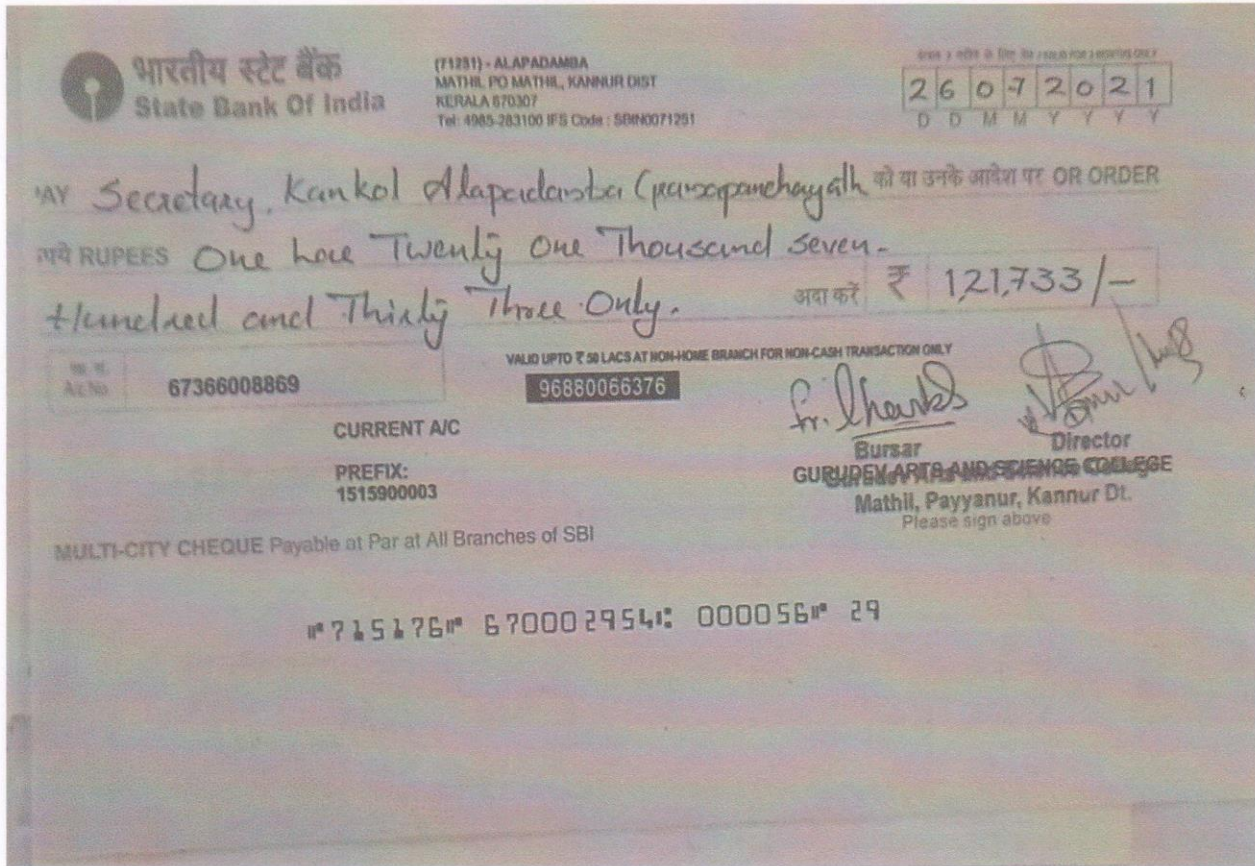 भारतीय स्टेट बैंक
State Bank Of India
(71251) - ALAPADAMBA
MATHIL PO MATHIL, KANNUR DIST
KERALA 670307
Tel: 4985-283100 IFS Code : SBIN0071251
26072021
D D M M Y Y Y Y
PAY Secretary, Kankol Alapadamba Gramapanchayath को या उनके आदेश पर OR ORDER
रुपये RUPEES One lac Twenty One Thousand Seven-
Hundred and Thirty Three Only. अदा करें ₹ 1,21,733/-
VALID UPTO ₹ 50 LACS AT NON-HOME BRANCH FOR NON-CASH TRANSACTION ONLY
A/c No. 67366008869 96880066376
CURRENT A/C
PREFIX:
1515900003
Bursar Director
GURUDEV ARTS AND SCIENCE COLLEGE
Mathil, Payyanur, Kannur Dt.
Please sign above
MULTI-CITY CHEQUE Payable at Par at All Branches of SBI
⑈715176⑈ 670002954⑆ 000056⑈ 29